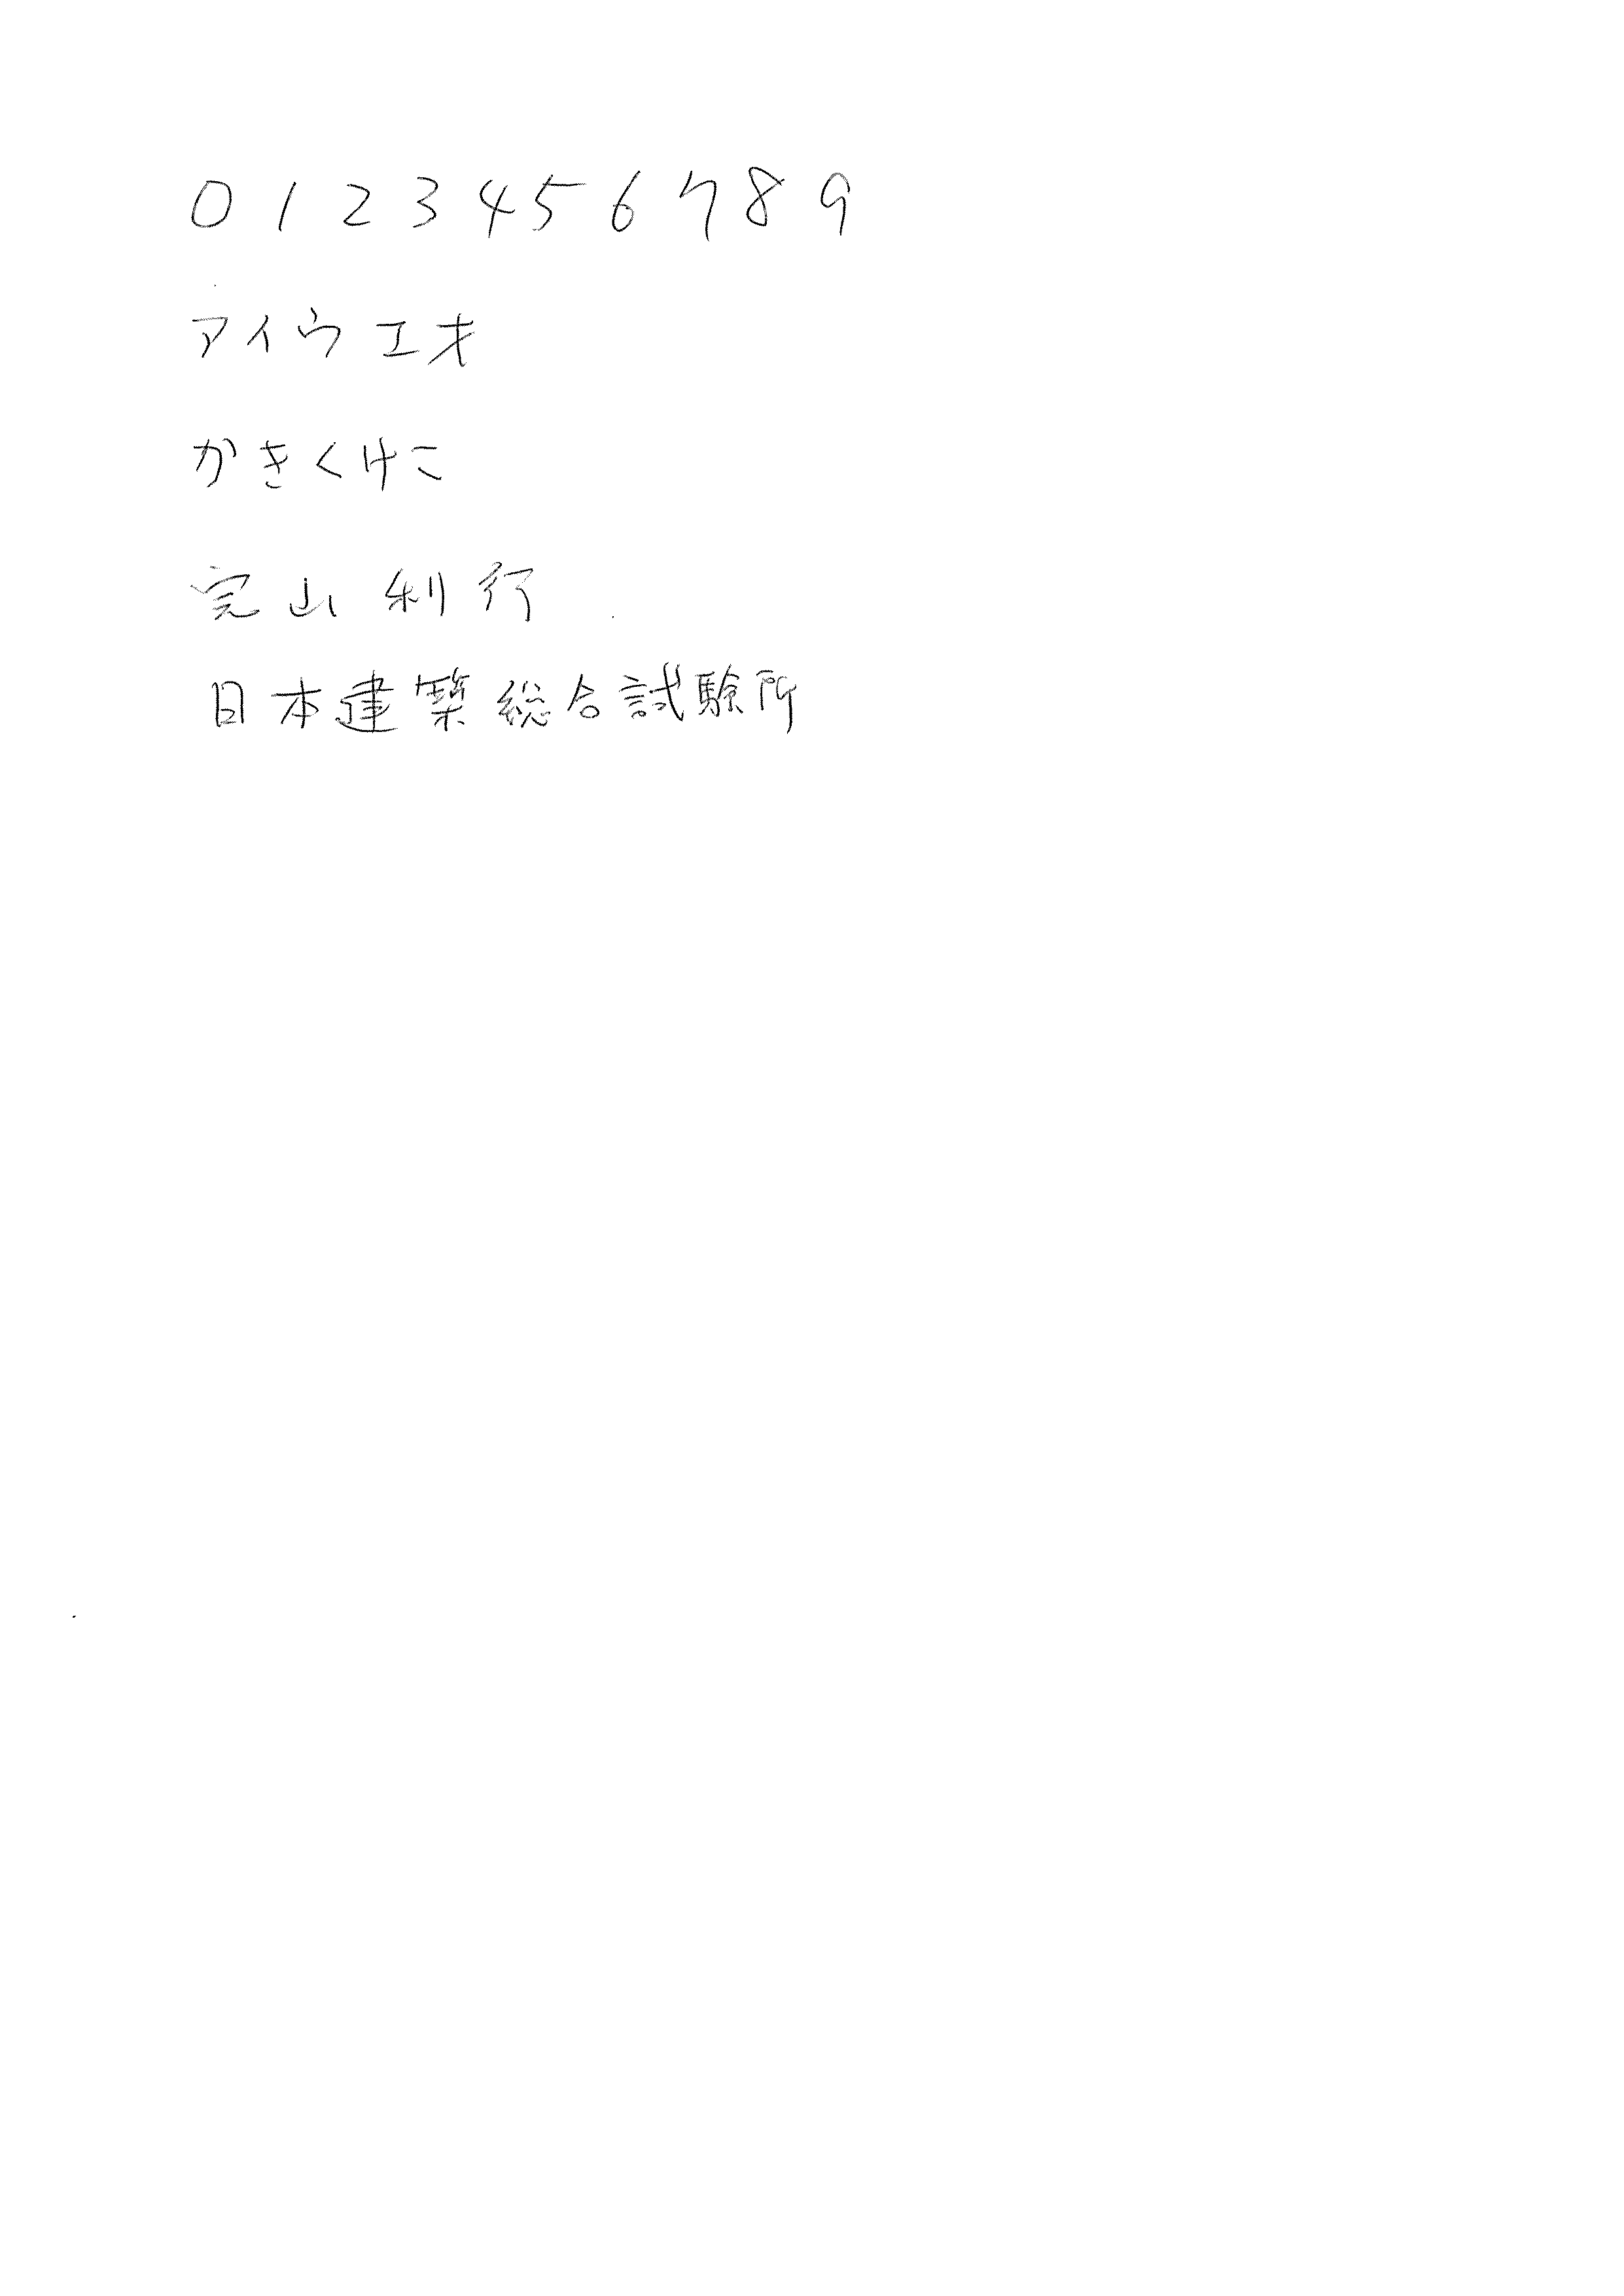 0123456789
アイウエオ
かきくけこ
完山利行
日本建築総合試験所